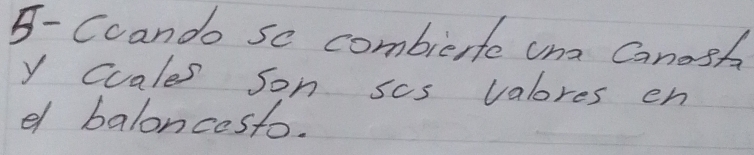 5- Ccando se combierte una Canasta
y Cuales son sus valores en
el baloncesto.